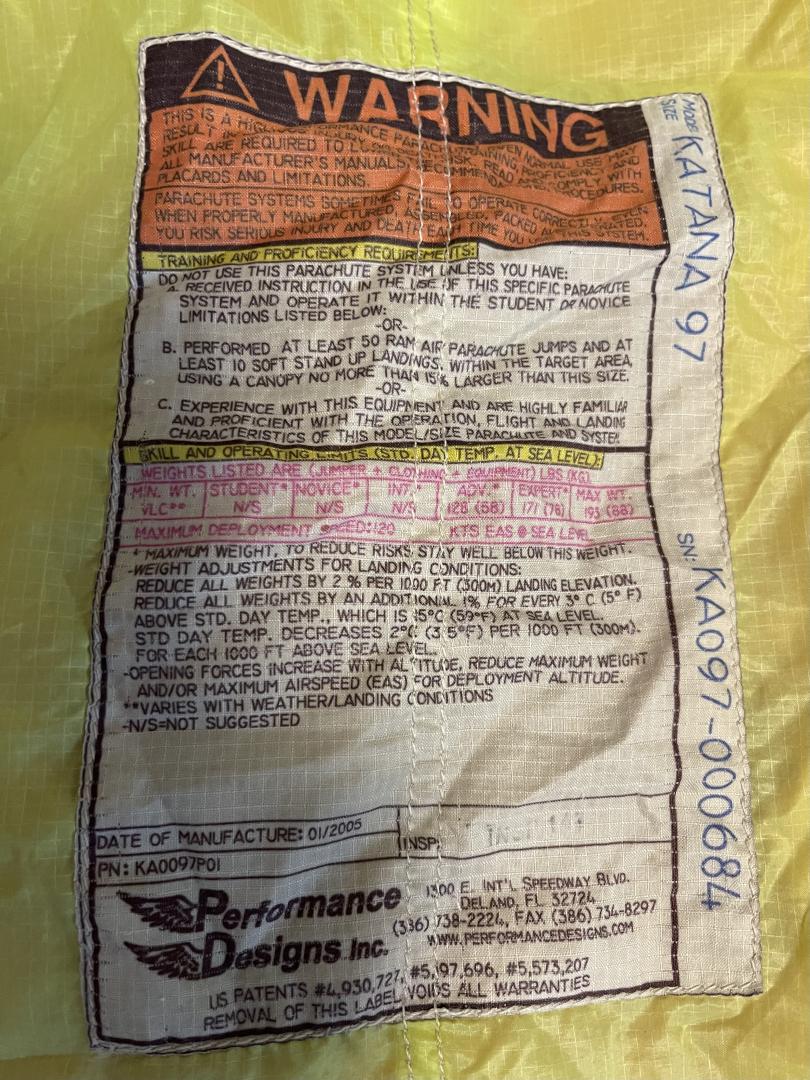 WARNING
THIS IS A HIGH PERFORMANCE PARACHUTE. EVEN NORMAL USE MAY
RESULT IN
SKILL ARE REQUIRED TO RISK. READ AND COMPLY WITH
ALL MANUFACTURER'S MANUALS, RECOMMENDED PROCEDURES,
PLACARDS AND LIMITATIONS.
PARACHUTE SYSTEMS SOMETIMES FAIL TO OPERATE CORRECTLY, EVEN
WHEN PROPERLY MANUFACTURED, ASSEMBLED, PACKED AND OPERATED.
YOU RISK SERIOUS INJURY AND DEATH EACH TIME YOU USE THIS SYSTEM.
TRAINING AND PROFICIENCY REQUIREMENTS:
DO NOT USE THIS PARACHUTE SYSTEM UNLESS YOU HAVE:
A. RECEIVED INSTRUCTION IN THE USE OF THIS SPECIFIC PARACHUTE
SYSTEM AND OPERATE IT WITHIN THE STUDENT OR NOVICE
LIMITATIONS LISTED BELOW:
-OR-
B. PERFORMED AT LEAST 50 RAM AIR PARACHUTE JUMPS AND AT
LEAST 10 SOFT STAND UP LANDINGS, WITHIN THE TARGET AREA,
USING A CANOPY NO MORE THAN 15% LARGER THAN THIS SIZE.
-OR-
C. EXPERIENCE WITH THIS EQUIPMENT AND ARE HIGHLY FAMILIAR
AND PROFICIENT WITH THE OPERATION, FLIGHT AND LANDING
CHARACTERISTICS OF THIS MODEL/SIZE PARACHUTE AND SYSTEM
SKILL AND OPERATING LIMITS (STD. DAY TEMP. AT SEA LEVEL):
WEIGHTS LISTED ARE (JUMPER + CLOTHING + EQUIPMENT) LBS (KG)
MIN. WT. STUDENT* NOVICE* INT.* ADV.* EXPERT* MAX WT.
VLC** N/S N/S N/S 128 (58) 171 (78) 193 (88)
MAXIMUM DEPLOYMENT SPEED: 120 KTS EAS @ SEA LEVEL
* MAXIMUM WEIGHT, TO REDUCE RISKS STAY WELL BELOW THIS WEIGHT.
-WEIGHT ADJUSTMENTS FOR LANDING CONDITIONS:
REDUCE ALL WEIGHTS BY 2 % PER 1000 FT (300M) LANDING ELEVATION.
REDUCE ALL WEIGHTS BY AN ADDITIONAL 1% FOR EVERY 3° C (5° F)
ABOVE STD. DAY TEMP., WHICH IS 15°C (59°F) AT SEA LEVEL.
STD DAY TEMP. DECREASES 2°C (3.5°F) PER 1000 FT (300M).
FOR EACH 1000 FT ABOVE SEA LEVEL.
-OPENING FORCES INCREASE WITH ALTITUDE, REDUCE MAXIMUM WEIGHT
AND/OR MAXIMUM AIRSPEED (EAS) FOR DEPLOYMENT ALTITUDE.
**VARIES WITH WEATHER/LANDING CONDITIONS
-N/S=NOT SUGGESTED
DATE OF MANUFACTURE: 01/2005
INSP:
PN: KA0097P01
Performance
Designs Inc.
1300 E. INT'L SPEEDWAY BLVD.
DELAND, FL 32724
(386) 738-2224, FAX (386) 734-8297
WWW.PERFORMANCEDESIGNS.COM
US PATENTS #4,930,727, #5,197,696, #5,573,207
REMOVAL OF THIS LABEL VOIDS ALL WARRANTIES
MODEL
SIZE
KATANA 97
SN: KA097-000684